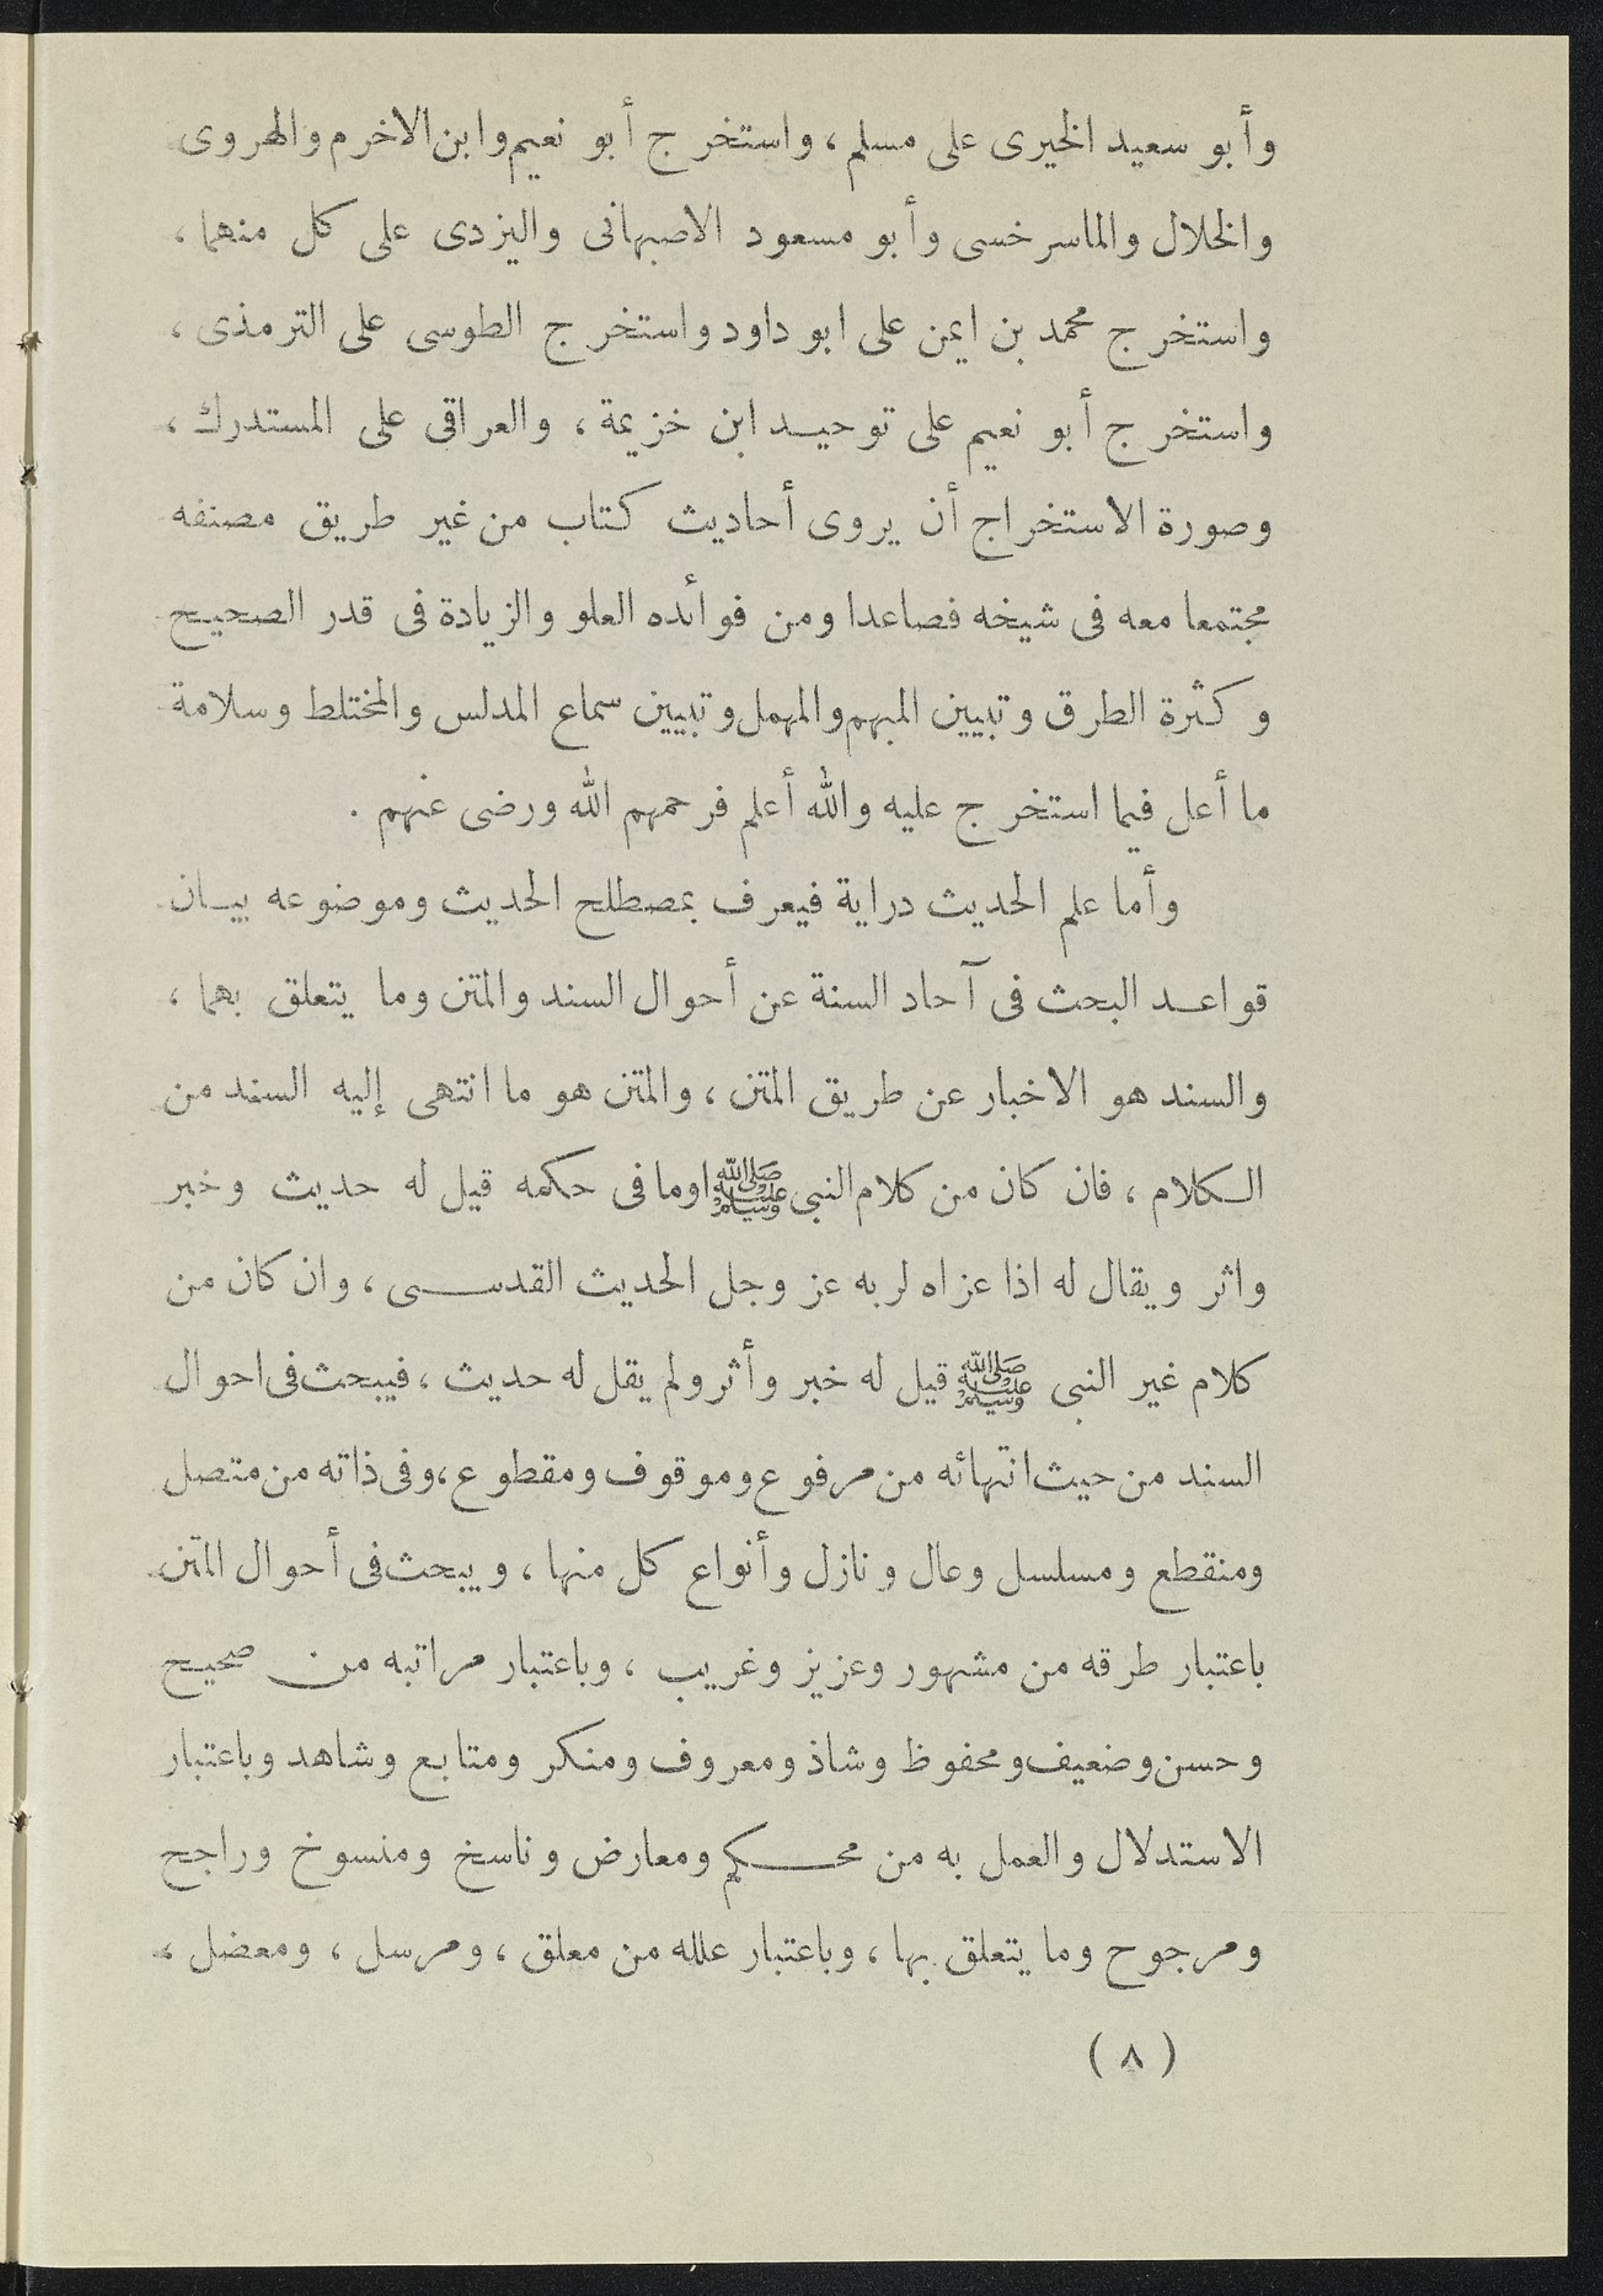 وأبو سعيد الخيرى على مسلم، واستخرج أبو نعيم وابن الاخرم والهروى
والخلال والماسرخسى وأبو مسعود الاصبهانى واليزدى على كل منهما،
واستخرج محمد بن ايمن على ابو داود واستخرج الطوسى على الترمذى،
واستخرج أبو نعيم على توحيد ابن خزيمة، والعراقى على المستدرك،
وصورة الاستخراج أن يروى أحاديث كتاب من غير طريق مصنفه
مجتمعا معه فى شيخه فصاعدا ومن فوائده العلو والزيادة فى قدر الصحيح
وكثرة الطرق وتبيين المبهم والمهمل وتبيين سماع المدلس والمختلط وسلامة
ما أعل فيما استخرج عليه والله أعلم فرحمهم الله ورضى عنهم .
وأما علم الحديث دراية فيعرف بمصطلح الحديث وموضوعه بيان
قواعد البحث فى آحاد السنة عن أحوال السند والمتن وما يتعلق بهما،
والسند هو الاخبار عن طريق المتن، والمتن هو ما انتهى إليه السند من
الكلام، فان كان من كلام النبى ﷺ اوما فى حكمه قيل له حديث وخبر
واثر ويقال له اذا عزاه لربه عز وجل الحديث القدسى، وان كان من
كلام غير النبى ﷺ قيل له خبر وأثر ولم يقل له حديث، فيبحث فى احوال
السند من حيث انتهائه من مرفوع وموقوف ومقطوع، وفى ذاته من متصل
ومنقطع ومسلسل وعال ونازل وأنواع كل منها، ويبحث فى أحوال المتن
باعتبار طرقه من مشهور وعزيز وغريب، وباعتبار مراتبه من صحيح
وحسن وضعيف ومحفوظ وشاذ ومعروف ومنكر ومتابع وشاهد وباعتبار
الاستدلال والعمل به من محكم ومعارض وناسخ ومنسوخ وراجح
ومرجوح وما يتعلق بها، وباعتبار علله من معلق، ومرسل، ومعضل،
(٨)